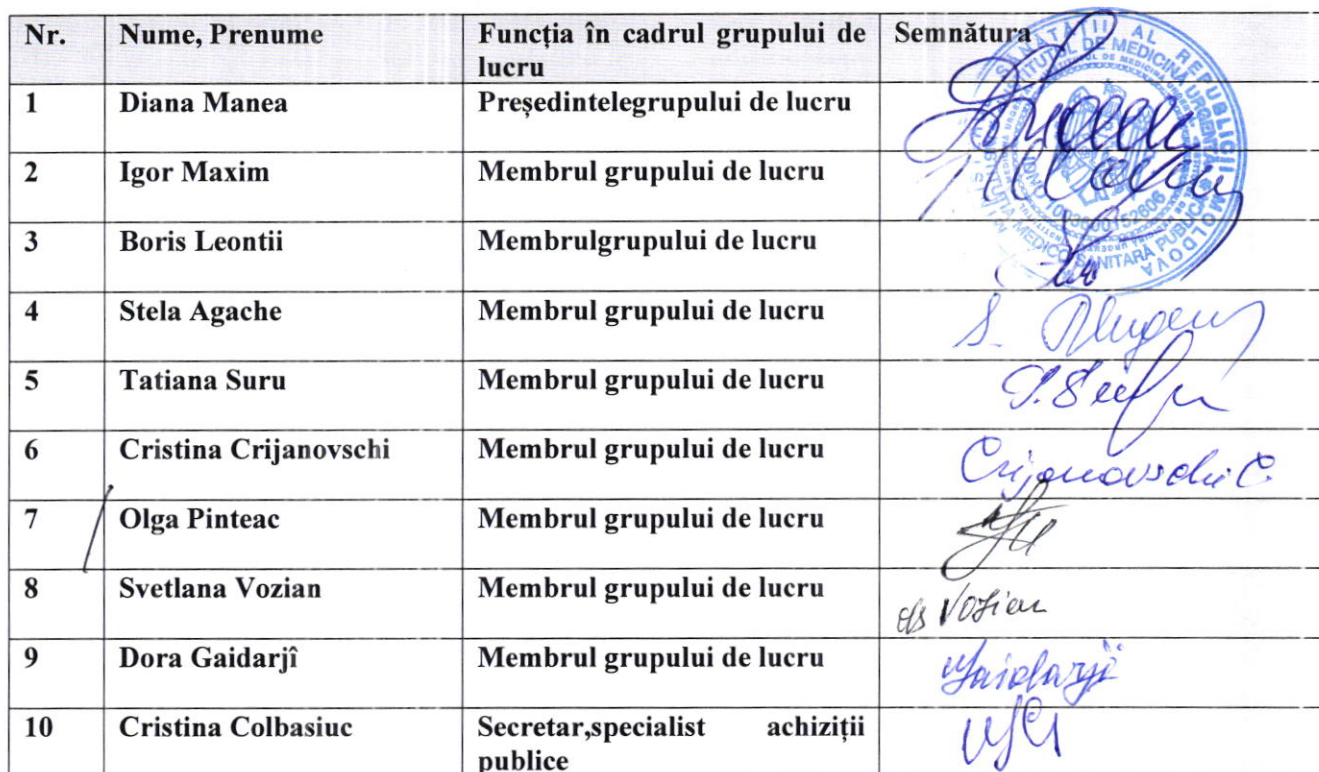 Nr. Nume, Prenume Funcția în cadrul grupului de lucru Semnătura
1 Diana Manea Președintelegrupului de lucru
2 Igor Maxim Membrul grupului de lucru
3 Boris Leontii Membrulgrupului de lucru
4 Stela Agache Membrul grupului de lucru
5 Tatiana Suru Membrul grupului de lucru
6 Cristina Crijanovschi Membrul grupului de lucru Crijanovschi C.
7 Olga Pinteac Membrul grupului de lucru
8 Svetlana Vozian Membrul grupului de lucru Vozian
9 Dora Gaidarjî Membrul grupului de lucru Gaidarjî
10 Cristina Colbasiuc Secretar,specialist achiziții publice
AL REPUBLICII MOLDOVA
DE MEDICINĂ URGENTĂ
IDNO 1003600152606
MEDICO SANITARĂ PUBLICĂ